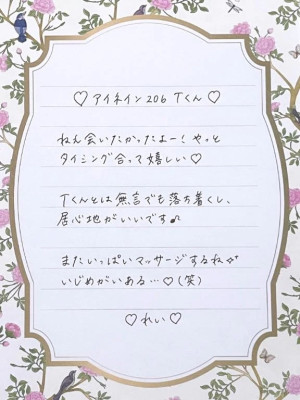 ♡アイネイン206 Tくん♡
ねえ会いたかったよー！やっと
タイミング合って嬉しい♡
Tくんとは無言でも落ち着くし、
居心地がいいです♪
またいっぱいマッサージするね✨
いじめがいある…♡(笑)
♡れい♡